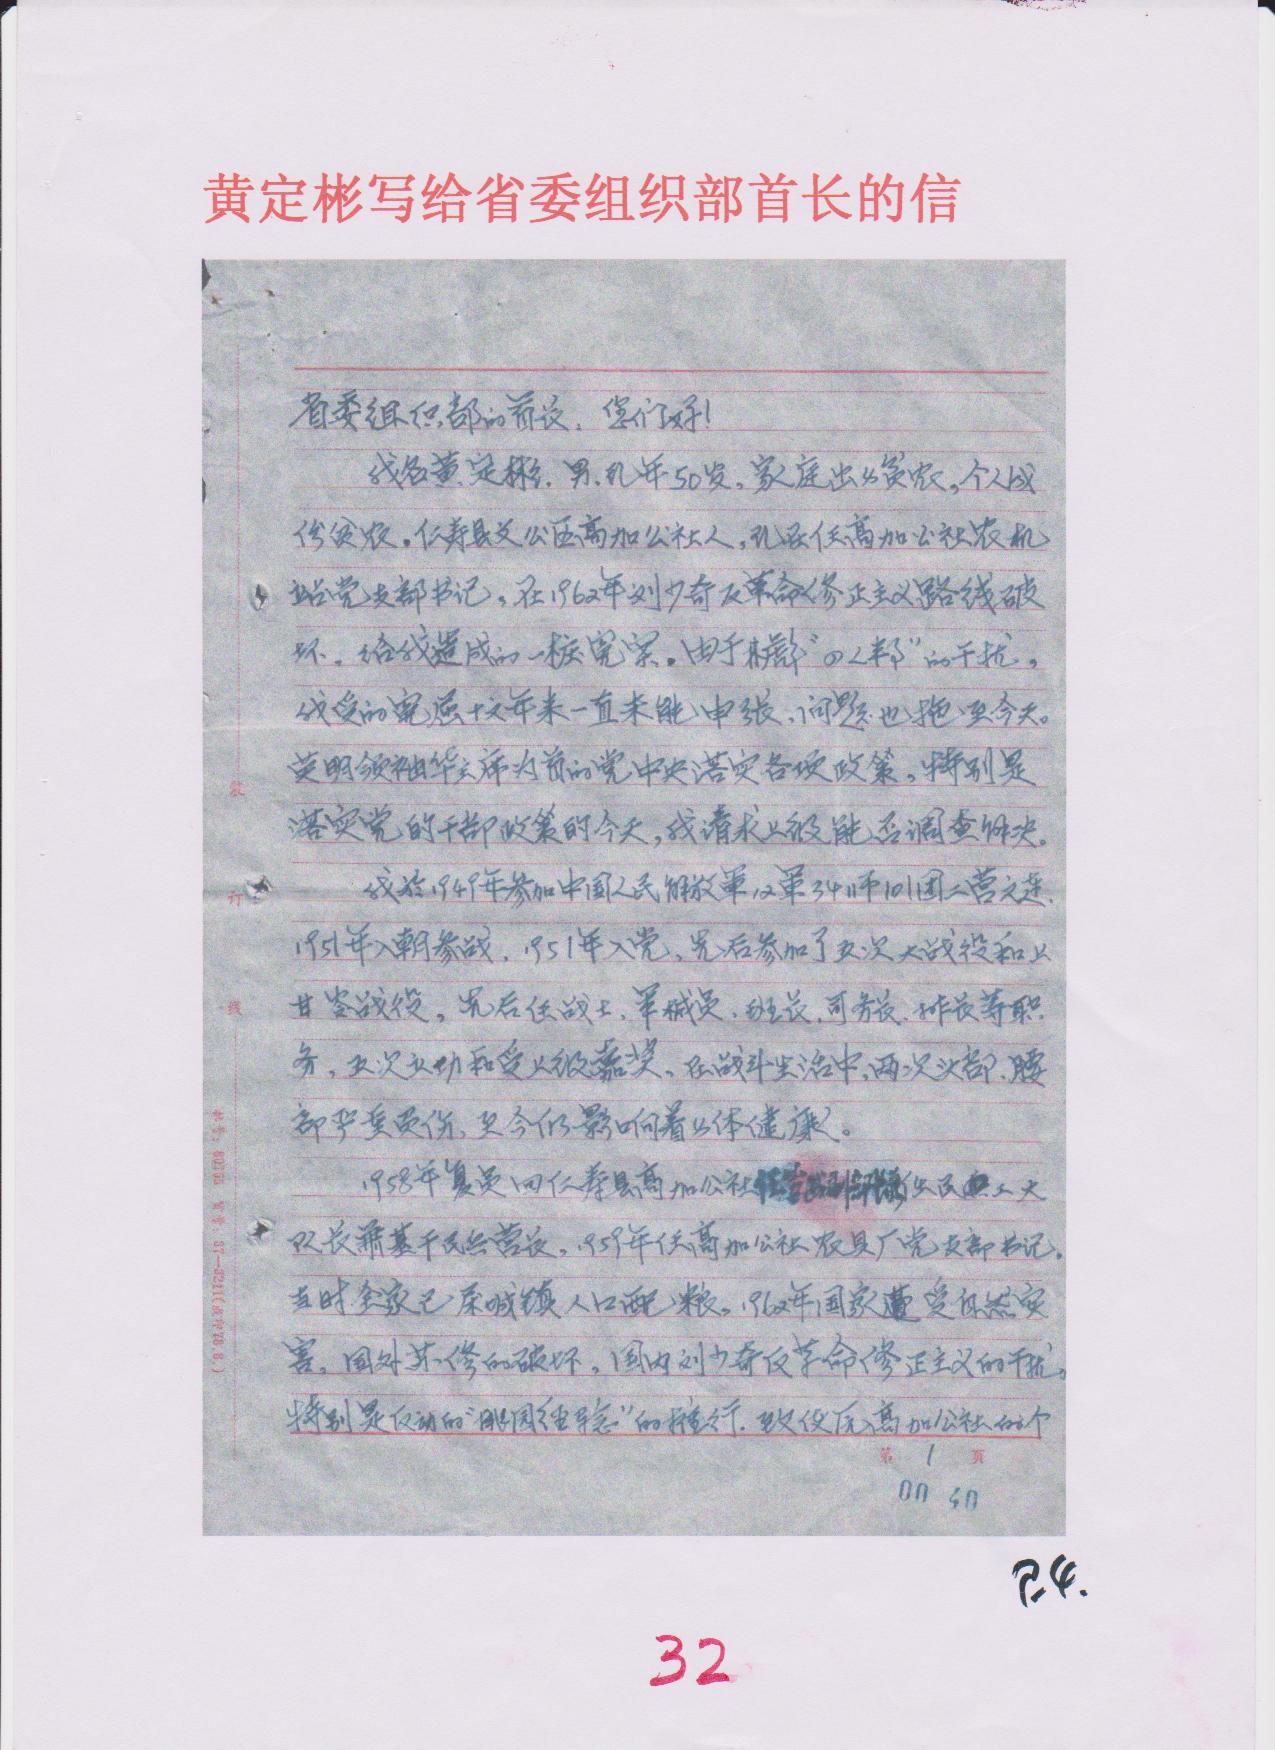 黄定彬写给省委组织部首长的信
省委组织部的首长：您们好！
我名黄定彬，男，现年50岁，家庭出身贫农，个人成
份贫农。仁寿县文公区高加公社人，现在任高加公社农机
站党支部书记，在1962年刘少奇反革命修正主义路线破
坏，给我造成的一桩冤案。由于林彪"四人邦"的干扰，
我受的冤屈十六年来一直未能申张，问题也拖至今天。
英明领袖华主席为首的党中央落实各项政策，特别是
落实党的干部政策的今天，我请求上级能否调查解决。
我於1949年参加中国人民解放軍12軍34师101团二营六连，
1951年入朝参战，1951年入党，先后参加了五次大战役和上
甘岭战役，先后任战士、軍械员、班长、司务长、排长等职
务，五次立功和受上级嘉奖，在战斗生活中，两次头部、腰
部严重负伤，至今仍影响着身体健康。
1958年复员回仁寿县高加公社 任民兵大
队长兼基干民兵营长，1959年任高加公社农具厂党支部书记，
当时全家已属城镇人口配粮。1962年国家遭受自然灾
害，国外苏修的破坏，国内刘少奇反革命修正主义的干扰，
特别是反动的" "的推行，致使原高加公社的个
第 1 页
00 40
装
订
线
P.4.
32